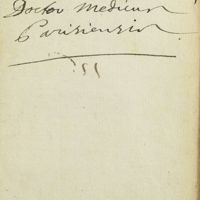 Doctor Medicus
Parisiensis.